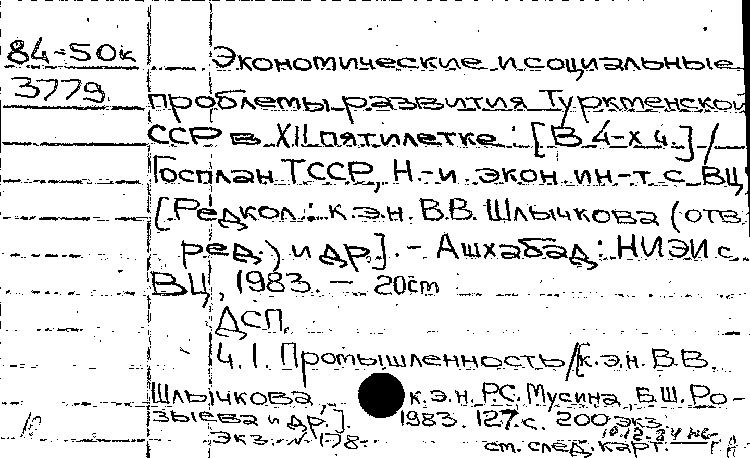 84-50к
3779
Экономические и социальные
проблемы развития Туркменской
ССР в XII пятилетке: [В 4-х ч.] /
Госплан ТССР, Н.-и. экон. ин-т с ВЦ;
[Редкол.: к.э.н. В.В. Шлычкова (отв.
ред.) и др.]. - Ашхабад: НИЭИ с
ВЦ, 1983. - 20см
ДСП.
Ч. 1. Промышленность/[к.э.н. В.В.
Шлычкова, к.э.н. Р.С. Мусина, Б.Ш. Ро-
зыева и др.]. 1983. 127 с. 200 экз.
экз. № 178
ст. след. карт.